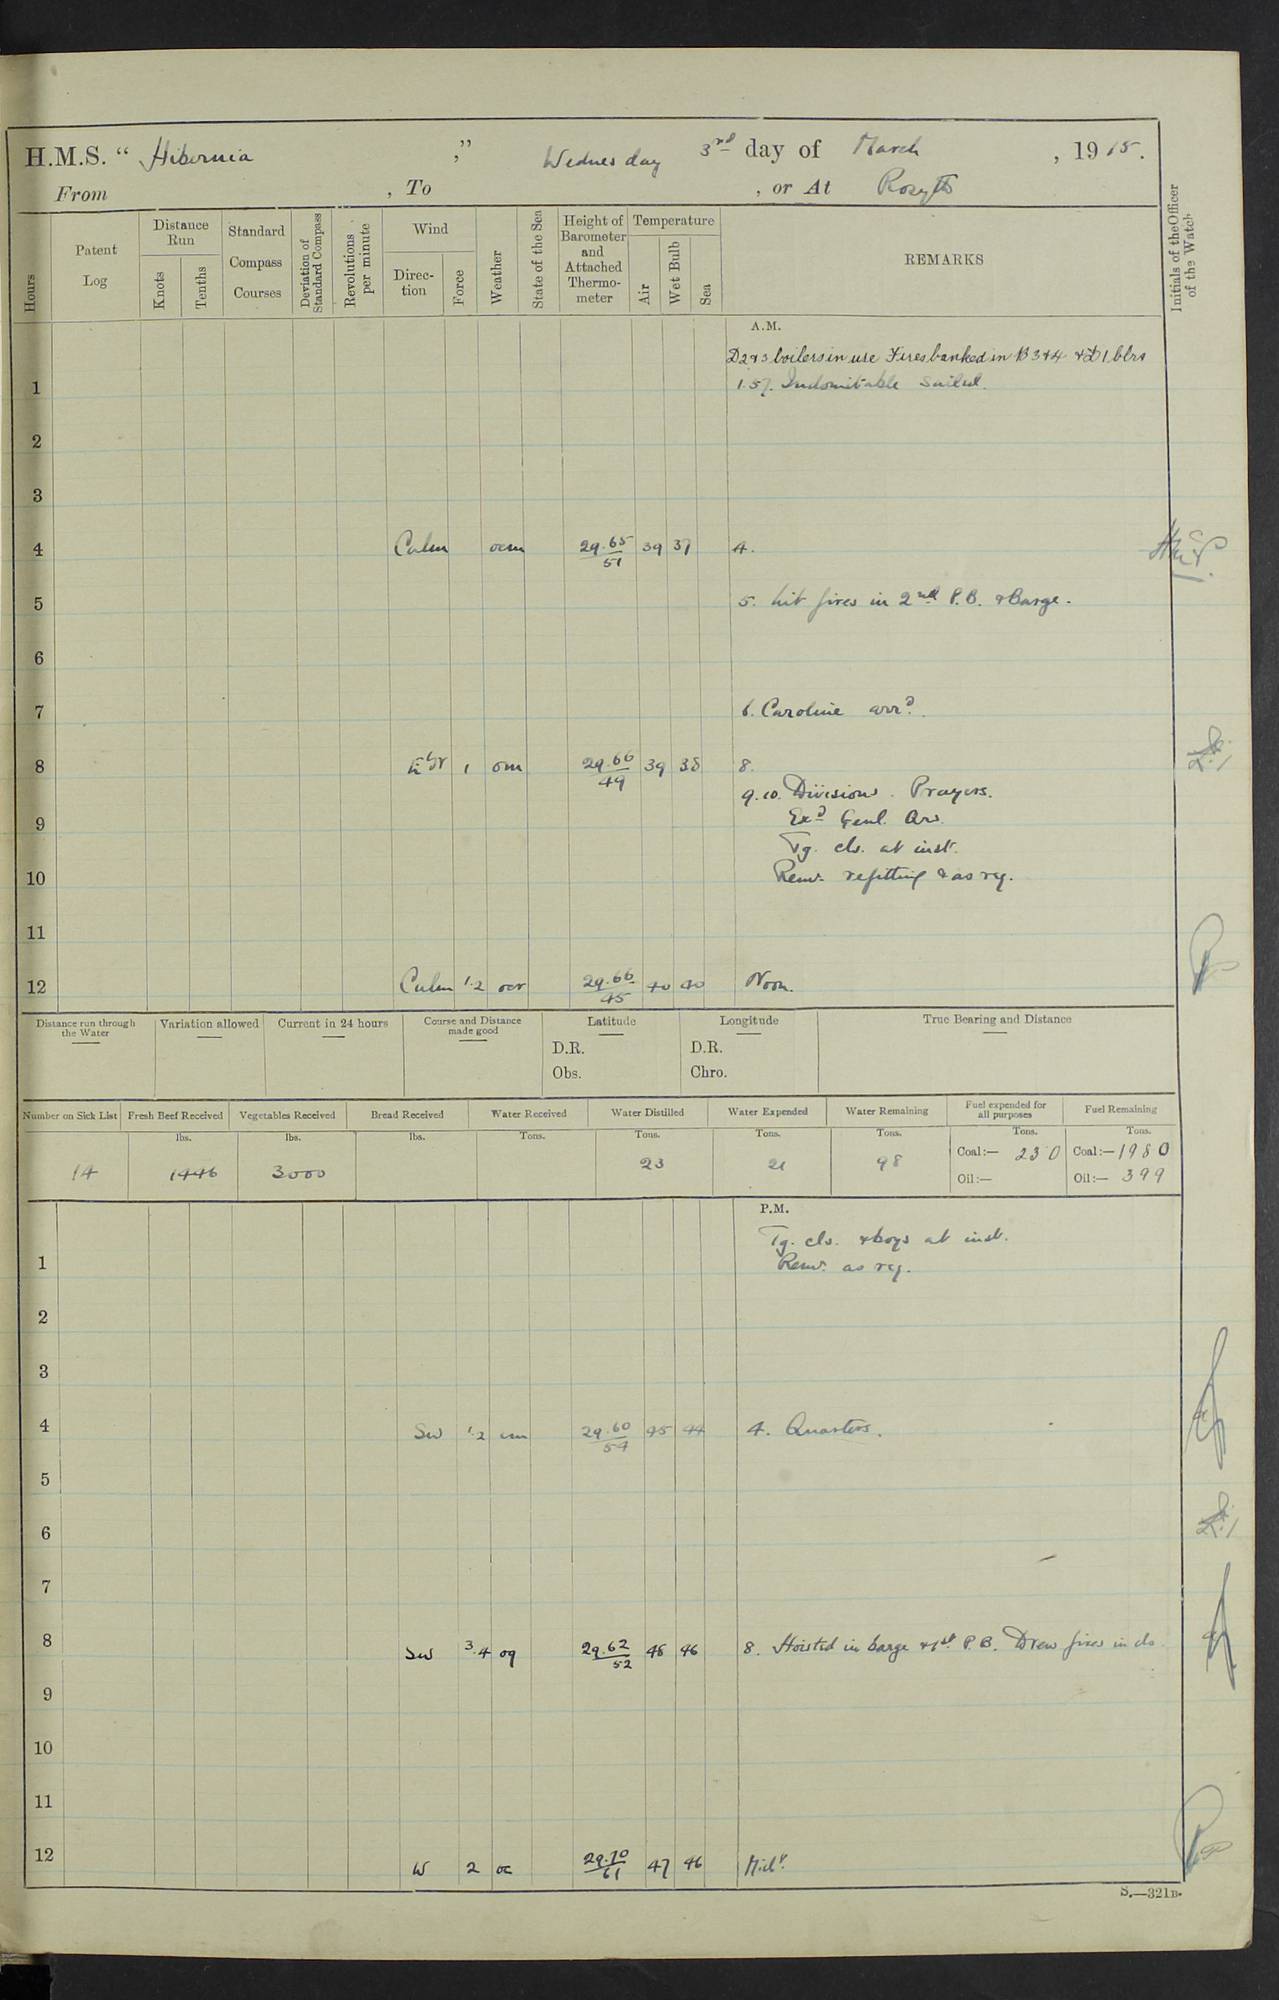 H.M.S. “ Hibernia ,” Wednesday 3rd day of March , 1915.
From , To , or At Rosyth
Hours
Patent Log
Distance Run
Knots
Tenths
Standard Compass Courses
Deviation of Standard Compass
Revolutions per minute
Wind
Direction
Force
Weather
State of the Sea
Height of Barometer and Attached Thermometer
Temperature
Air
Wet Bulb
Sea
REMARKS
Initials of the Officer of the Watch
A.M.
D2&3 boilers in use Fires banked in B3&4 & D1 blrs
1 1.57. Indomitable sailed.
2
3
4 Calm ocm 29.65/51 39 37 4.
5 5. lit fires in 2nd P.B. & Barge.
6
7 6. Caroline arrd.
8 1 om 29.66/49 39 38 8.
9.10. Divisions. Prayers.
9 Exd Genl. Qrs.
Tg. cls. at inst.
10 Remr. refitting & as req.
11
12 Calm 1.2 29.66/45 40 40 Noon.
Distance run through the Water
Variation allowed
Current in 24 hours
Course and Distance made good
Latitude
D.R.
Obs.
Longitude
D.R.
Chro.
True Bearing and Distance
Number on Sick List
Fresh Beef Received
Vegetables Received
Bread Received
Water Received
Water Distilled
Water Expended
Water Remaining
Fuel expended for all purposes
Fuel Remaining
lbs. lbs. lbs. Tons. Tons. Tons. Tons. Tons. Tons.
14 1446 3000 23 21 98 Coal:— 230 Coal:— 1980
Oil:— Oil:— 399
P.M.
Tg. cls. & boys at inst.
1 Remr. as req.
2
3
4 SW 1.2 cm 29.60/54 45 44 4. Quarters.
5
6
7
8 SW 3.4 oq 29.62/52 48 46 8. Hoisted in barge & 1st P.B. Drew fires in do
9
10
11
12 W 2 oc 29.70/61 47 46 Midt.
S.—321B.